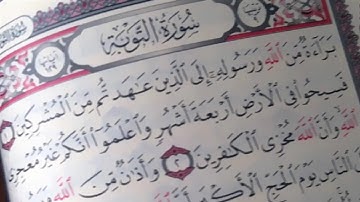 سُورَةُ التَّوْبَةِ
بَرَآءَةٌ مِّنَ ٱللَّهِ وَرَسُولِهِۦٓ إِلَى ٱلَّذِينَ عَـٰهَدتُّم مِّنَ ٱلْمُشْرِكِينَ ١
فَسِيحُوا۟ فِى ٱلْأَرْضِ أَرْبَعَةَ أَشْهُرٍ وَٱعْلَمُوٓا۟ أَنَّكُمْ غَيْرُ مُعْجِزِى
ٱللَّهِ وَأَنَّ ٱللَّهَ مُخْزِى ٱلْكَـٰفِرِينَ ٢ وَأَذَٰنٌ مِّنَ ٱللَّهِ
ٱلنَّاسِ يَوْمَ ٱلْحَجِّ ٱلْأَكْبَرِ